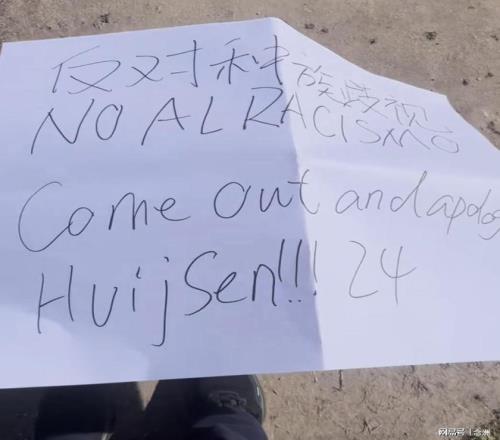 反对种族歧视
NO AL RACISMO
Come out and apolog
Huijsen!!! 24
网易号（念洲）